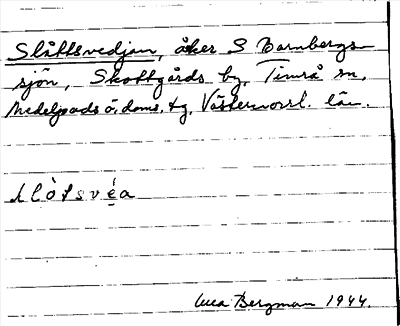 Slåttsvedjan, åker S Bornbergs-
sjön, Skottgårds by, Timrå sn,
Medelpads ö. doms. tg, Västernorrl. län.
slòtsvéa
Bergman 1944.